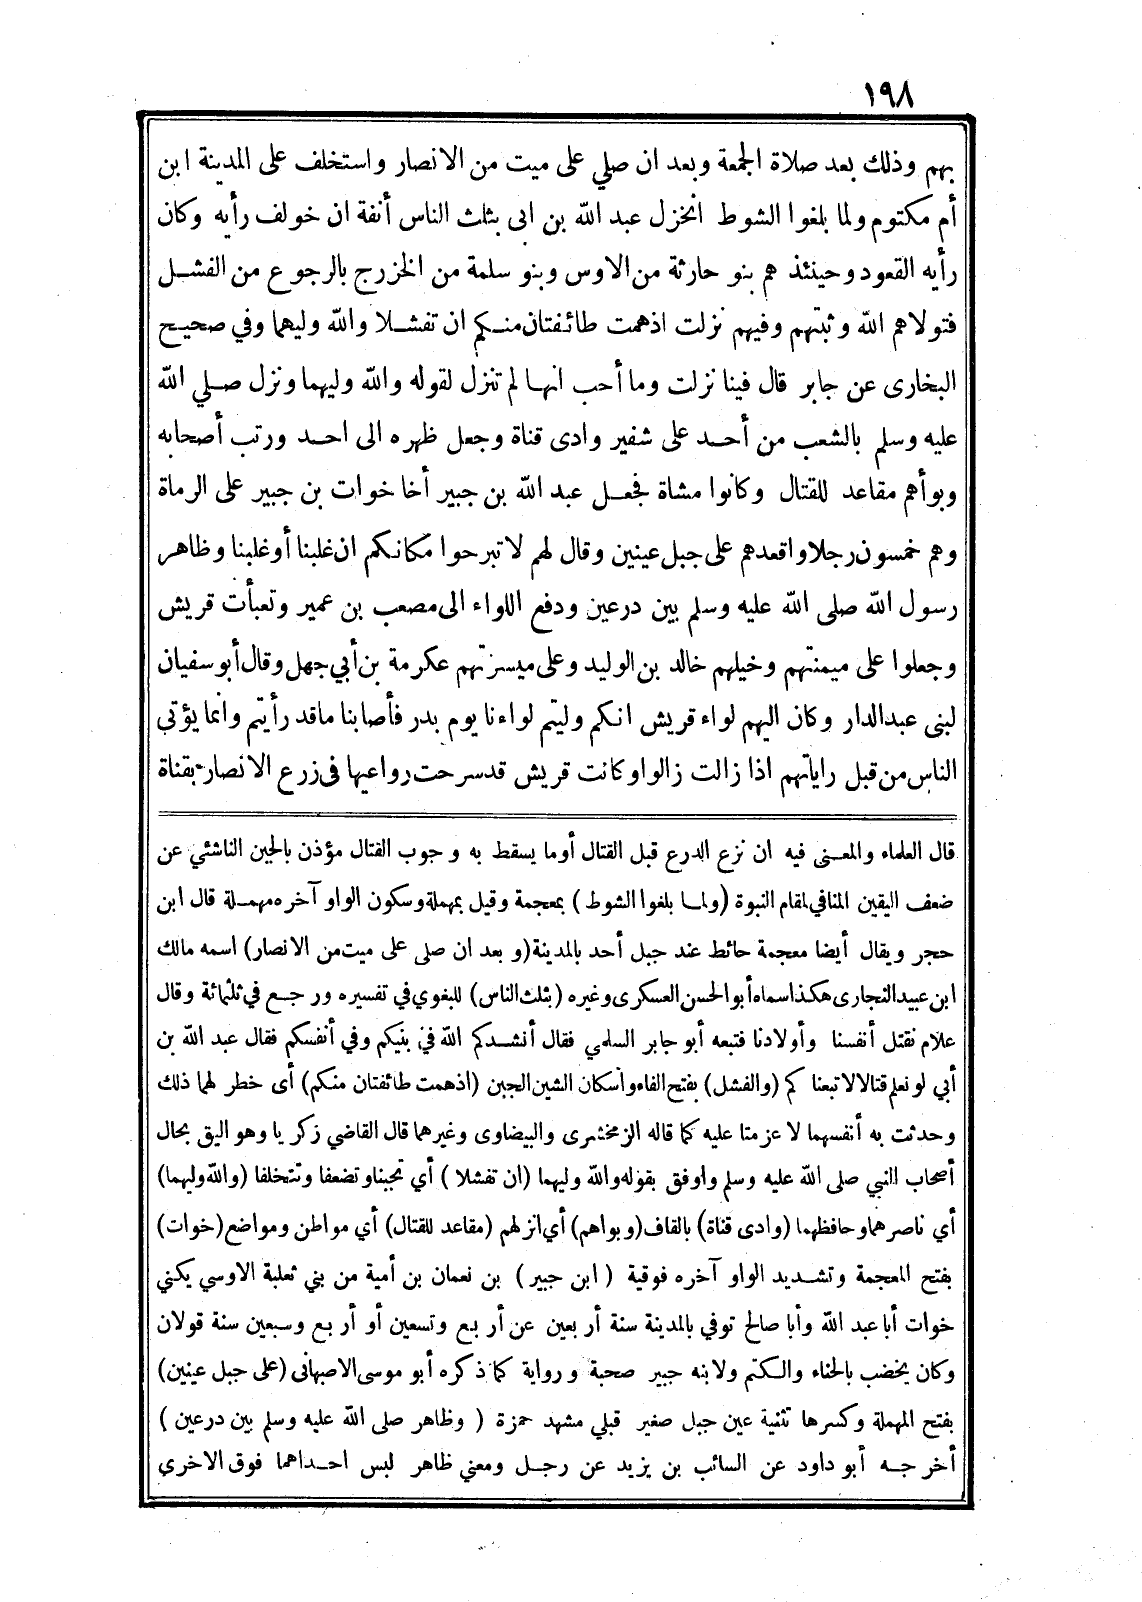 ١٩٨
بهم وذلك بعد صلاة الجمعة وبعد ان صلي على ميت من الانصار واستخلف على المدينة ابن
أم مكتوم ولما بلغوا الشوط انخزل عبد الله بن ابى بثلث الناس أنفة ان خولف رأيه وكان
رأيه القعود وحينئذ هم بنو حارثة من الاوس وبنو سلمة من الخزرج بالرجوع من الفشل
فتولاهم الله وثبتهم وفيهم نزلت اذهمت طائفتان منكم ان تفشلا والله وليهما وفي صحيح
البخارى عن جابر قال فينا نزلت وما أحب انها لم تنزل لقوله والله وليهما ونزل صلي الله
عليه وسلم بالشعب من أحد على شفير وادى قناة وجعل ظهره الى احد ورتب أصحابه
وبوأهم مقاعد للقتال وكانوا مشاة فجعل عبد الله بن جبير أخا خوات بن جبير على الرماة
وهم خمسون رجلا واقعدهم على جبل عينين وقال لهم لا تبرحوا مكانكم ان غلبنا أو غلبنا وظاهر
رسول الله صلى الله عليه وسلم بين درعين ودفع اللواء الى مصعب بن عمير وتعبأت قريش
وجعلوا على ميمنتهم وخيلهم خالد بن الوليد وعلى ميسرتهم عكرمة بن أبي جهل وقال أبو سفيان
لبنى عبد الدار وكان اليهم لواء قريش انكم وليتم لواءنا يوم بدر فأصابنا ماقد رأيتم وانما يؤتى
الناس من قبل راياتهم اذا زالت زالوا وكانت قريش قد سرحت رواعيها فى زرع الانصار بقناة
قال العلماء والمعنى فيه ان نزع الدرع قبل القتال أوما يسقط به وجوب القتال مؤذن بالجبن الناشئي عن
ضعف اليقين المنافي لمقام النبوة (ولما بلغوا الشوط) بمعجمة وقيل بمهملة وسكون الواو آخره مهملة قال ابن
حجر ويقال أيضا معجمة حائط عند جبل أحد بالمدينة (وبعد ان صلى على ميت من الانصار) اسمه مالك
ابن عبيد النجارى هكذا سماه أبو الحسن العسكرى وغيره (بثلث الناس) للبغوي في تفسيره ورجع في ثلثمائة وقال
علام نقتل أنفسنا وأولادنا فتبعه أبو جابر السلمي فقال أنشدكم الله في بنيكم وفي أنفسكم فقال عبد الله بن
أبي لو نعلم قتالا لاتبعناكم (والفشل) بفتح الفاء وأسكان الشين الجبن (اذهمت طائفتان منكم) أى خطر لهما ذلك
وحدثت به أنفسهما لا عزمتا عليه كما قاله الزمخشرى والبيضاوى وغيرهما قال القاضي زكريا وهو اليق بحال
أصحاب النبي صلى الله عليه وسلم واوفق بقوله والله وليهما (ان تفشلا) أي تجبنا وتضعفا وتتخلفا (والله وليهما)
أي ناصرهما وحافظهما (وادى قناة) بالقاف (وبواهم) أي انزلهم (مقاعد للقتال) أي مواطن ومواضع (خوات)
بفتح المعجمة وتشديد الواو آخره فوقية (ابن جبير) بن نعمان بن أمية من بني ثعلبة الاوسي يكني
خوات أبا عبد الله وأبا صالح توفي بالمدينة سنة أربعين عن أربع وتسعين أو أربع وسبعين سنة قولان
وكان يخضب بالحناء والكتم ولابنه جبير صحبة ورواية كما ذكره أبو موسى الاصبهانى (على جبل عينين)
بفتح المهملة وكسرها تثنية عين جبل صغير قبلي مشهد حمزة (وظاهر صلى الله عليه وسلم بين درعين)
أخرجه أبو داود عن السائب بن يزيد عن رجل ومعني ظاهر لبس احداهما فوق الاخرى